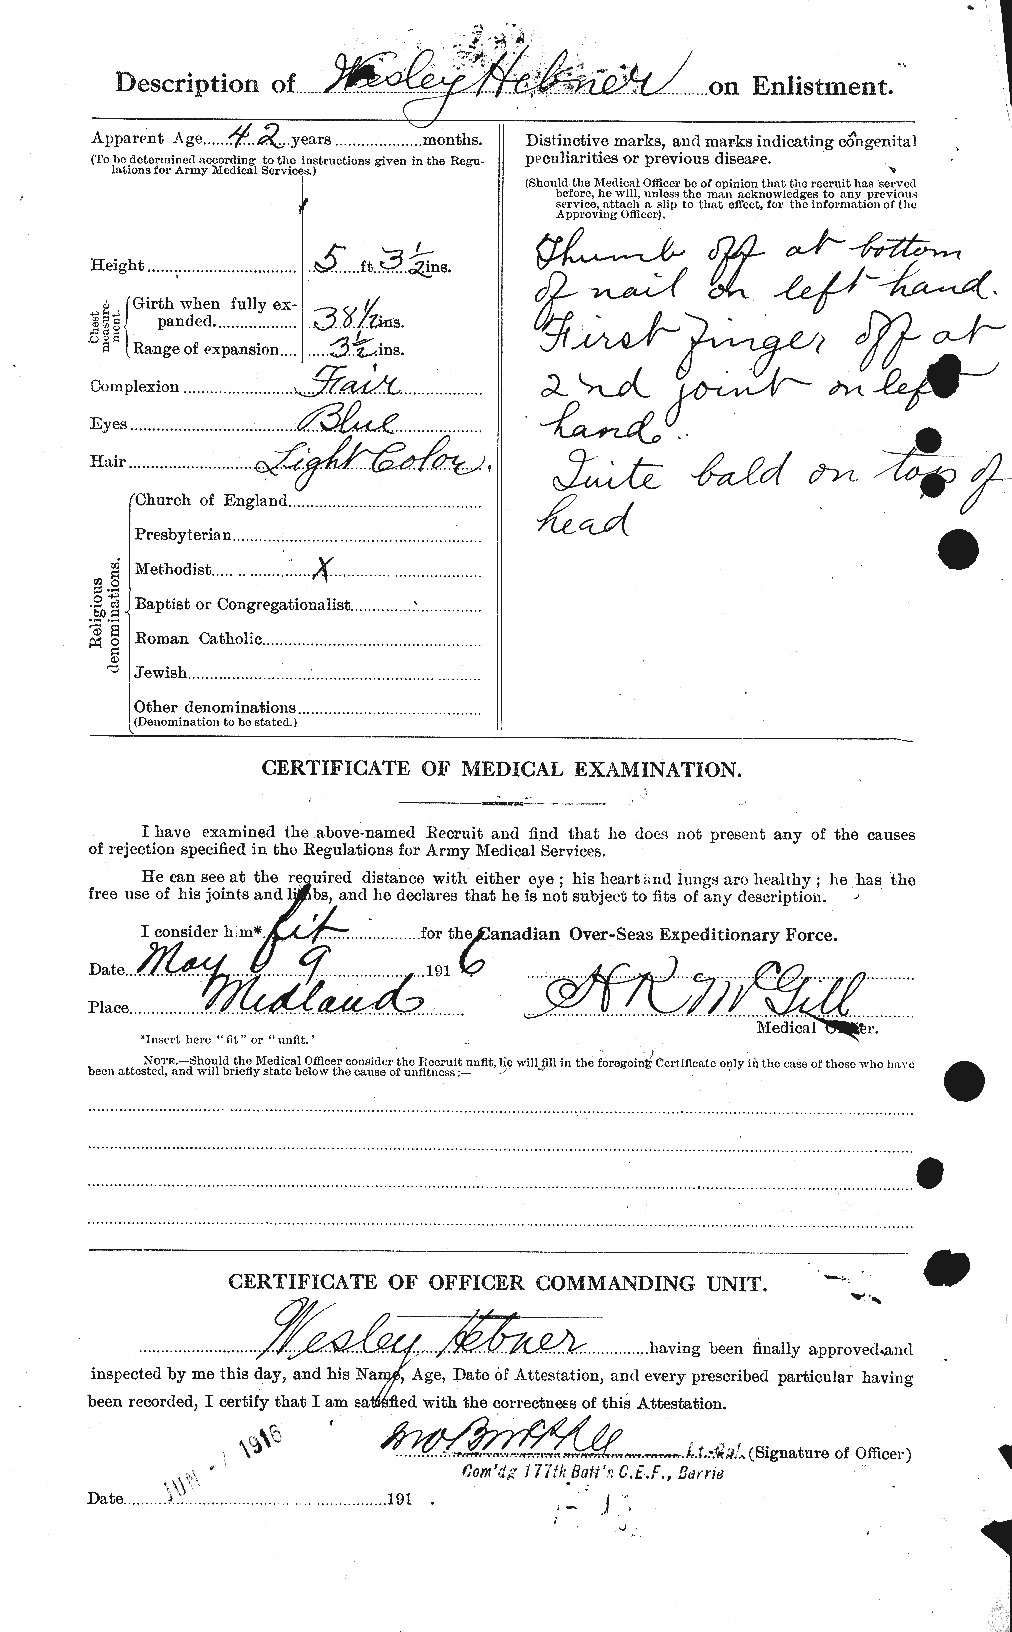 Description of Wesley Hebner on Enlistment.
Apparent Age 42 years months.
(To be determined according to the instructions given in the Regu-
lations for Army Medical Services.)
Height 5 ft. 3 1/2 ins.
Chest measurement.
Girth when fully ex-
panded 38 1/2 ins.
Range of expansion 3 1/2 ins.
Complexion Fair
Eyes Blue
Hair Light Color.
Religious denominations.
Church of England
Presbyterian
Methodist X
Baptist or Congregationalist
Roman Catholic
Jewish
Other denominations
(Denomination to be stated.)
Distinctive marks, and marks indicating congenital
peculiarities or previous disease.
(Should the Medical Officer be of opinion that the recruit has served
before, he will, unless the man acknowledges to any previous
service, attach a slip to that effect, for the information of the
Approving Officer).
Thumb off at bottom
of nail on left hand.
First finger off at
2nd joint on left
hand.
Quite bald on top of
head
CERTIFICATE OF MEDICAL EXAMINATION.
I have examined the above-named Recruit and find that he does not present any of the causes
of rejection specified in the Regulations for Army Medical Services.
He can see at the required distance with either eye; his heart and lungs are healthy; he has the
free use of his joints and limbs, and he declares that he is not subject to fits of any description.
I consider him* fit for the Canadian Over-Seas Expeditionary Force.
Date May 9 1916
Place Midland
H R McGill
Medical Officer.
*Insert here "fit" or "unfit."
NOTE.—Should the Medical Officer consider the Recruit unfit, he will fill in the foregoing Certificate only in the case of those who have
been attested, and will briefly state below the cause of unfitness:—
CERTIFICATE OF OFFICER COMMANDING UNIT.
Wesley Hebner having been finally approved and
inspected by me this day, and his Name, Age, Date of Attestation, and every prescribed particular having
been recorded, I certify that I am satisfied with the correctness of this Attestation.
Lt.-Col. (Signature of Officer)
Com'dg 177th Batt'n C.E.F., Barrie
JUN - 1916
Date 191 .